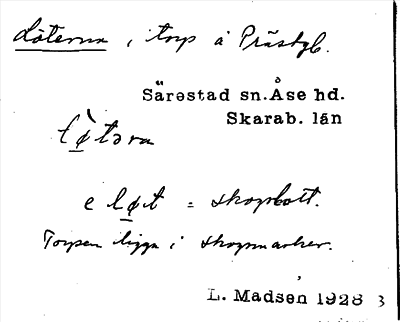 Löterna, torp å Prästgb.
Särestad sn. Åse hd.
Skarab. län
lø̀tərn
e løt = skogslott.
Torpen ligga i skogsmarker.
L. Madsen 1928